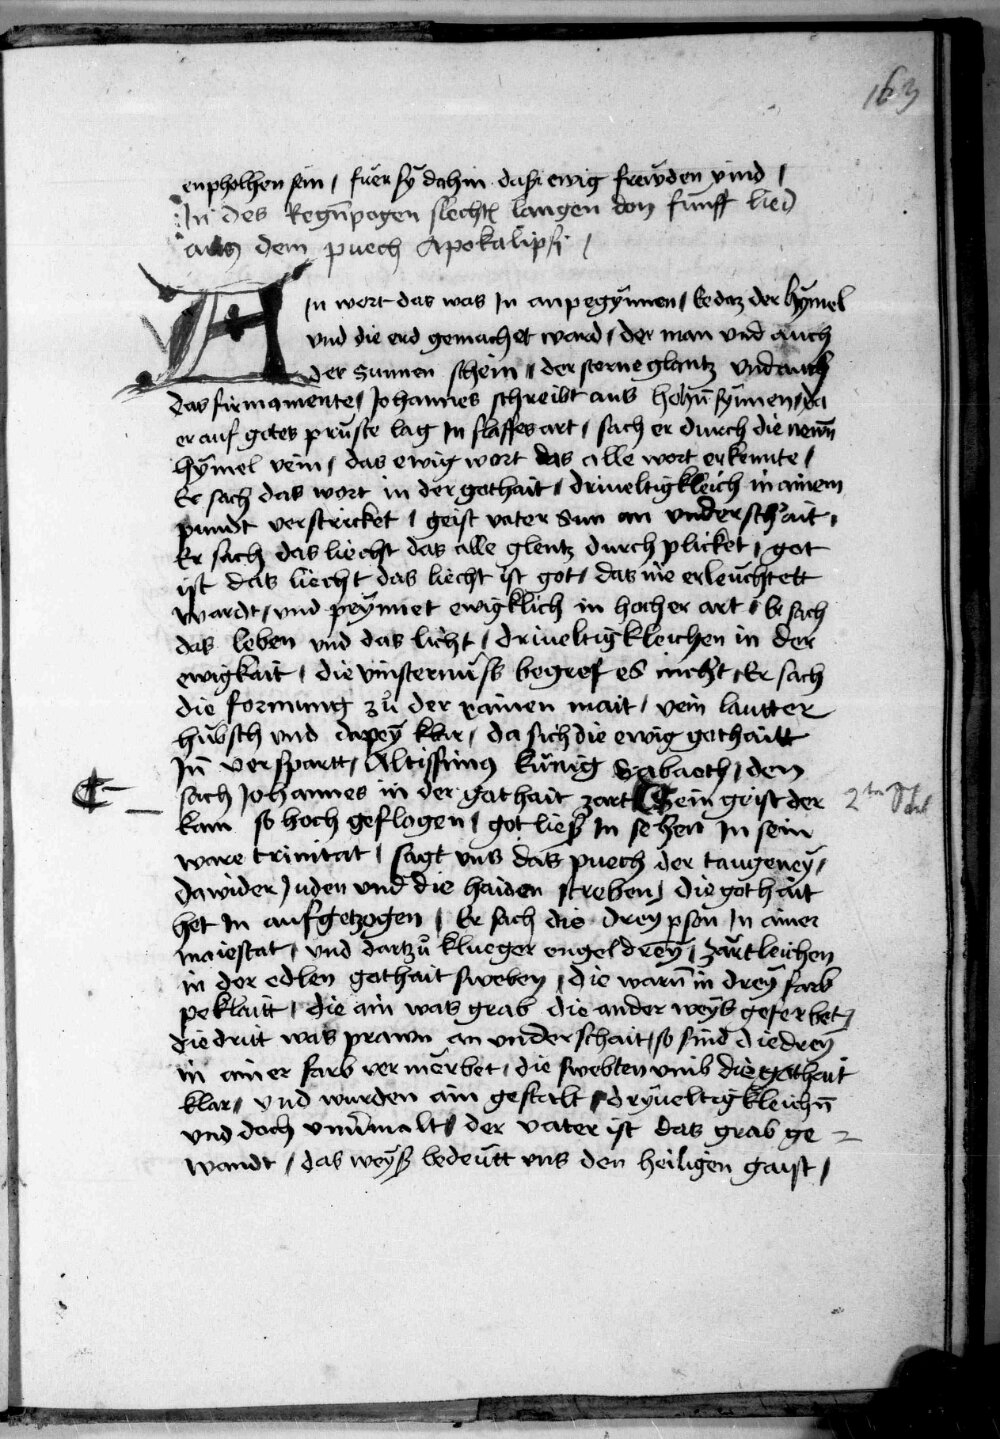 163
enpholhen sein / fuer sy dahin das si ewig freuden vind /
In des Regenpogen slechtn langen don funff lied
aus dem puech Apokalipsi /
AIn wort das was In anpegynnen / Ee daz der hymel
vnd die erd gemachet ward / der man vnd auch
der Sunnen schein / der sterne glantz vnd auch
das firmamente / Johannes schreibt aus hohn synnen / da
er auf gotes pruste lag In slaffes art / sach er durch die newn
hymel vein / das ewig wort das alle wort erkennte /
Er sach das wort in der gothait / driueltigkleich in ainem
pundt verstricket / geist vater Sun an vnderschait /
Er sach das liecht das alle glentz durch plicket / got
ist das liecht das liecht ist got / das nie erleuchtett
wardt / vnd peynnet ewigklich in hocher art / Er sach
das leben vnd das licht / driueltigkleichen in der
ewigkait / die vinsternuss begref es nicht / Er sach
die formung zu der rainen mait / vein lautter
hubsch vnd dapey klar / da sich die ewig gothaitt
In verspartt / Altissimus kunig Sabaoth / den
sach Johannes in der gothait zart Sein geist der
2ter Stol
kam so hoch geflogen / got liess In sehen In sein
ware trinitat / sagt vns das puech der taugeney /
dawider Juden vnd die haiden streben / die gothait
het In aufgetzogen / Er sach die drey pson In ainer
maiestat / vnd dartzu klueger engel drey / zartleichen
in der edlen gothait sweben / die warn in drey farb
peklait / die ain was grab die ander weys geferbet /
die dritt was prawn an vnderschait / so sind die drey
in ainer farb vermerbet / die swebten vmb die gothait
klar / vnd wurden ain gestalt / dryueltigkleichn
vnd doch vnuermalt / der vater ist das grab ge
wandt / das weyss bedeutt vns den heiligen gaist /